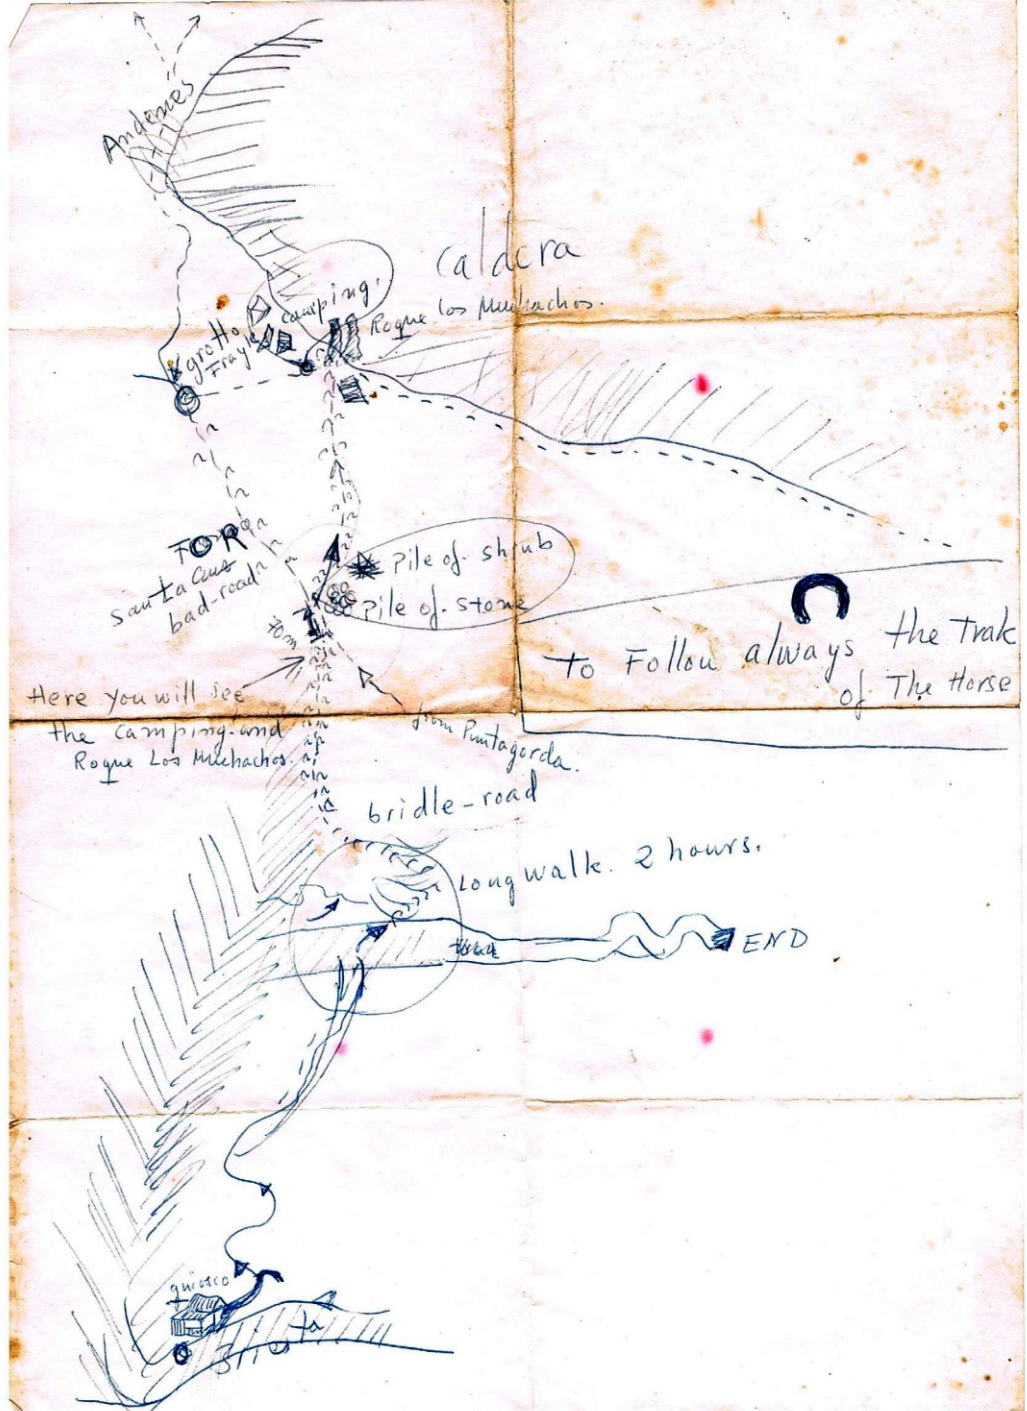 Andenes
Caldera
camping.
Roque los Muchachos.
grotto
Frayle
FOR
santa Cruz
bad-road
Pile of shrub
Pile of stone
70m
to Follou always the trak
of The Horse
Here you will see
the camping and
Roque Los Muchachos.
from Puntagorda.
bridle-road
Long walk. 2 hours.
END
quiosco